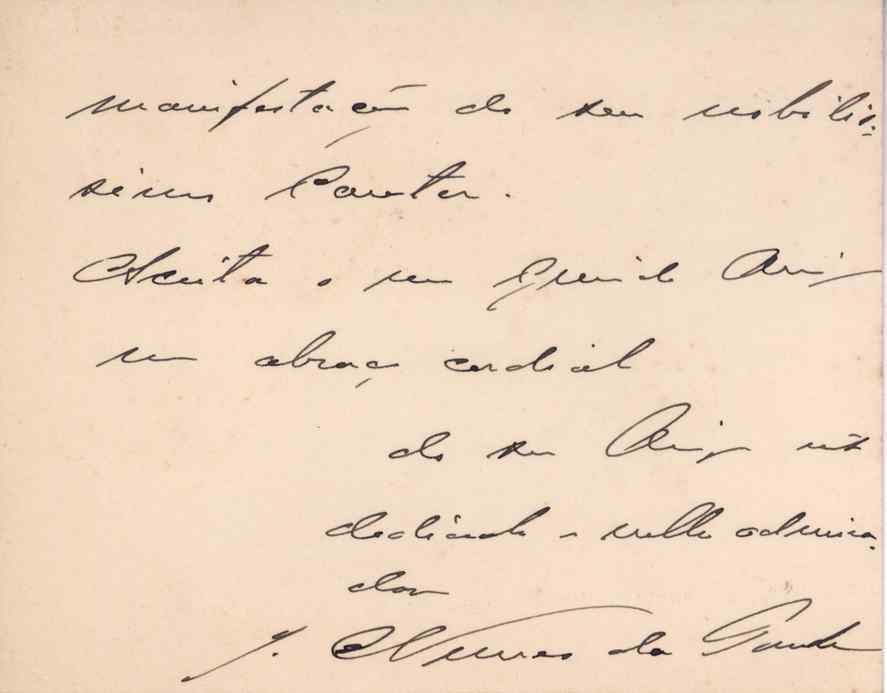 manifestação do seu nobilis-
simo Carater.
Aceita o meu querido Amigo
um abraço cordial
do seu Amigo mto
dedicado e velho admira-
dor
J. Nunes da Ponte